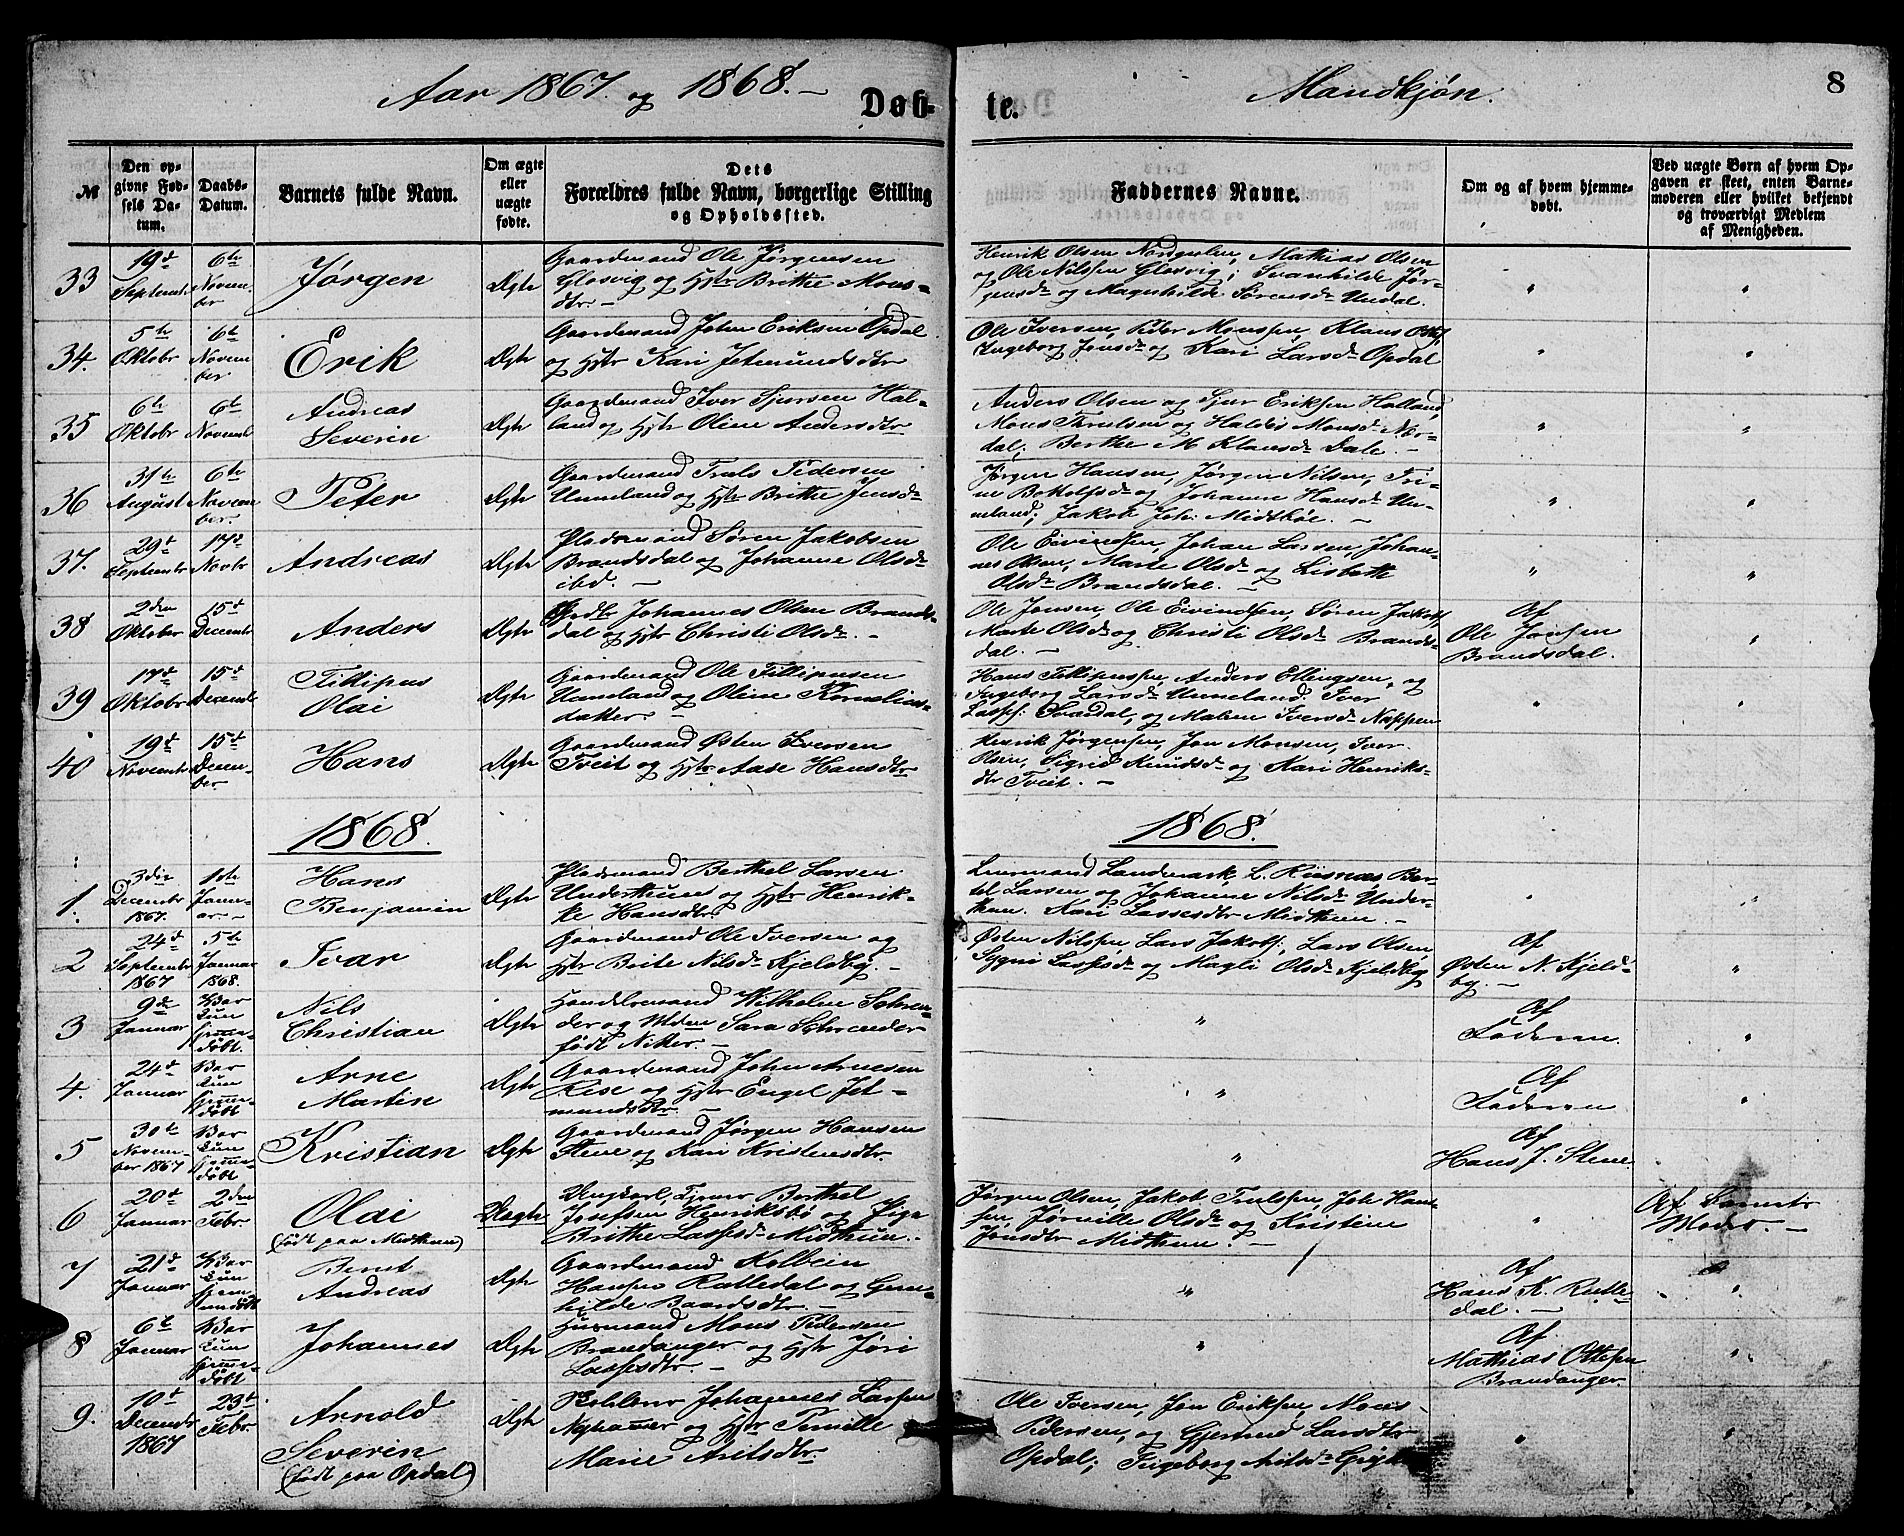 Aar 1867 og 1868. –
Døb-
te.
Mandkjøn.
8
№
Den op-
givne Fød-
sels Da-
tum.
Daabs-
Datum.
Barnets fulde Navn.
Om ægte
eller
uægte
fødte.
Dets
Forældres fulde Navn, borgerlige Stilling
og Opholdssted.
Faddernes Navne.
Om og af hvem hjemme-
døbt.
Ved uægte Børn af hvem Op-
gaven er skeet, enten Barne-
moderen eller hvilket bekjendt
og troværdigt Medlem
af Menigheden.
33
19d
Septembr
6te
Novem-
ber
Jørgen
Ægte
Gaardmand Ole Jørgensen
Glosvig og Hstr Brithe Mons-
dtr –
Henrik Olsen Nordgulen, Mathias Olsen
og Ole Nilssen Glosvig; Svanhilde Jør-
gensd og Magnhilde Sørensd Undal.
34.
5te
Oktobr
6te
Novem-
ber
Erik
Ægte
Gaardmand John Eriksen Opdal
og Hstr Kari Jetmundsdtr
Ole Iversen, Peder Monssen, Klaus
Ingeborg Jonsd og Kari Larsd Opdal
35
6te
Oktobr
6te
Novembr
Andreas
Severin
Ægte
Gaardmand Iver Sjursen Hal-
land og Hstr Oline Andersdtr
Anders Olsen og Sjur Eriksen Halland,
Mons Trulsen og Haldis Monsd Nor-
dal; Berthe M Klausd Dale. –
36
31te
August
6te
Novem-
ber.
Peter
Ægte
Gaardmand Truls Pedersen
Unneland og Hstr Brithe Jensd
Jørgen Hansen, Jørgen Nilsen, Tri-
ne Bottolfsd og Johanne Hansd Un-
neland; Jakob Joh. Midtbøe. –
37.
29d
Septembr
17d
Novbr
Andreas
Ægte
Pladsmand Søren Jakobsen
Brandsdal og Johanne Olsd
ibd. –
Ole Eivindsen, Johan Larsen, Johan-
nes Olsen, Marte Olsd og Lisbeth
Olsd Brandsdal. –
38
2den
Oktober
15d
Decembr
Anders
Ægte
Grdbr Johannes Olsen Brands-
dal og Hstr Christi Olsd. –
Ole Jonsen, Ole Eivindsen, Søren Jakobs,
Marte Olsd og Christi Olsd Brands-
dal. –
Af
Ole Jonsen
Brandsdal.
39
17d
Oktobr
15d
Decembr
Fillipus
Olai
Ægte
Gaardmand Ole Fillipusen
Unneland og Oline Kornelius-
datter –
Hans Fillipussen, Anders Ellingsen, og
Ingeborg Larsd Unneland. Iver
Lasss. Svardal, og Malene Iversd Nappen
40
19d
Novembr
15d
Decem-
ber
Hans
Ægte
Gaardmand Østen Iversen
Tveit og Hstr Aase Hansdtr
Henrik Jørgensen, Jon Monsen, Iver
Olsen, Sigrid Knudsd og Kari Henriks-
dtr Tveit. –
1868.
1868.
1.
3die
Decembr
1867.
1ste
Janu-
ar. –
Hans
Benjamin
Ægte
Pladsmand Berthel Larsen
Underthun og Hstr Henrik-
ke Hansdtr.
Lensmand Landmark, L. Risnæs Ber-
tel Larsen og Johanne Nilsd Under-
thun. Kari Lassesdtr Midthun. –
2
24d
Septembr
1867
5te
Januar
1868.
Ivar
Ægte
Gaardmand Ole Iversen og
Hstr Brite Nilsd Kjeldby. –
Østen Nilssen, Lars Jakobs., Lars Olsen,
Sygni Lassesd og Magli Olsd Kjeldby
Af
Østen N. Kjeld-
by. –
3
9de
Januar
Bar
Kun
hjemme-
døbt.
Nils
Christian
Ægte
Handelsmand Wilhelm Schrø-
der og Mdm Sara Schrøder
født Nitter. –
Af
Faderen.
4.
24d
Januar
Bar
Kun
hjemme-
døbt
Arne
Martin
Ægte
Gaardmand John Arnesen
Rise og Hstr Engel Jet-
mundsdtr. –
Af
Faderen
5
30te
Novem-
ber 1867
Bar
Kun
hjemme-
døbt
Kristian
Ægte
Gaardmand Jørgen Hansen
Stene og Kari Kristensdtr.
Af
Hans J. Stene
6
20d
Januar
2den
Febr
Olai
(født paa Midthun)
Uægte
Ungkarl, Tjener Berthel
Josefsen Henriksbø og Pige
Brithe Lassesd Midthun. –
Jørgen Olsen, Jakob Trulssen, Joh Han-
sen, Jørnille Olsd og Kristine
Jonsdtr Midthun. –
Af Barnets
Moder. –
7
21d
Januar
Bar
Kun
hjem-
medøbt
Bernt
Andreas
Ægte
Gaardmand Kolbein
Hansen Rutledal og Gun-
hilde Baardsdtr. –
Af
Hans K. Rutle-
dal. –
8
6te
Januar
Bar
Kun
hjemme-
døbt
Johannes
Ægte
Husmand Mons Pedersen
Brandanger og Hstr Jøri
Lassesdtr. –
Af
Mathias Ottesen
Brandanger.
9.
10d
Decembr
1867
23d
Febr.
Arnold
Severin
(født paa Opdal)
Ægte
Johannes Larsen
Nyhammer og Hstr Pernille
Marie Axelsdtr.
Ole Iversen, Jon Eriksen, Mons
Pedersen, og Gjermud Larsdtr
Opdal; Ingeborg Nilsd